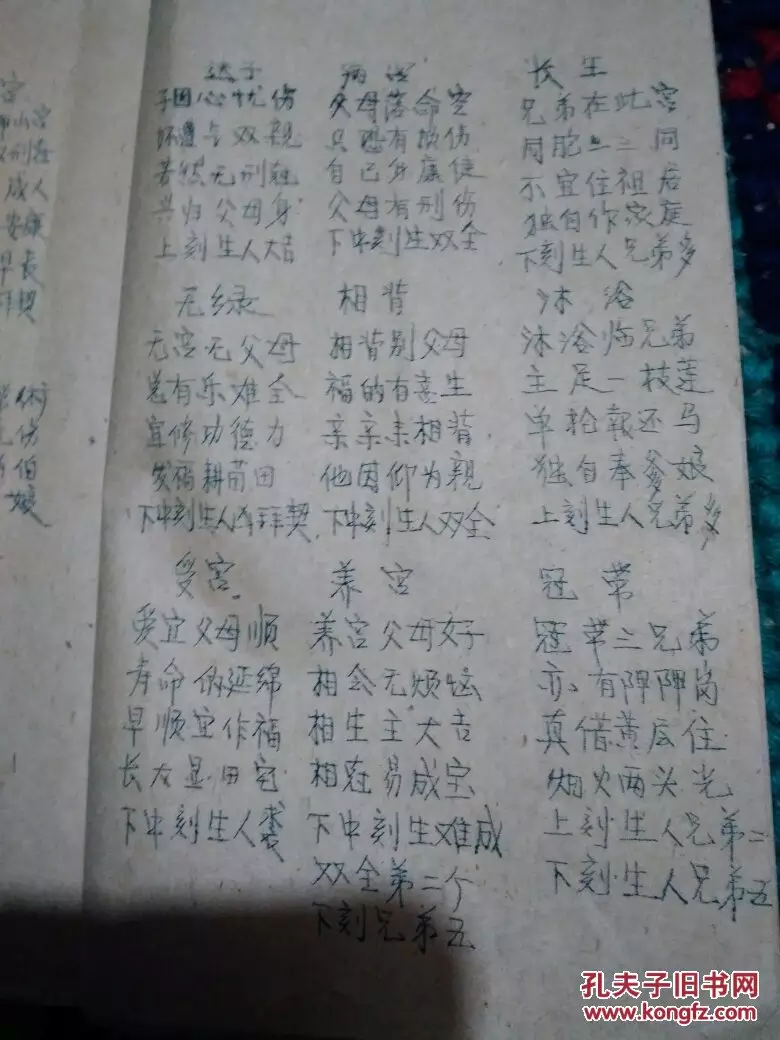 长生
兄弟在此宫
同胞二三同
不宜住祖居
独自作家庭
下刻生人兄弟多
父母落命宫
只恐有损伤
自己身康健
父母有刑伤
下中刻生双全
子
心忧伤
双亲
若然无刑
共归父母身
上刻生人大吉
无绿
无宫无父母
总有乐难全
宜修功德力
发福耕苗田
下中刻生人凶拜契
相背
相背别父母
福的有
生
亲亲未相背
他因仰为亲
下中刻生人双全
沐浴
沐浴临兄弟
主足一枝莲
单枪报还马
独自奉爹娘
上刻生人兄弟多
受宫
受宜父母顺
寿命的延绵
早顺宜作福
长友显田宅
下中刻生人
养宫
养宫父母好
相公无烦恼
相生主大吉
相冠易成宝
下中刻生难成
双全第二个
下刻兄弟五
冠带
冠带三兄弟
亦有
岗
真借黄后住
烟火两头光
上刻生人兄弟二
下刻生人兄弟五
成人
安康
早长
拜契
术
伤
伯
娘
孔夫子旧书网
www.kongfz.com